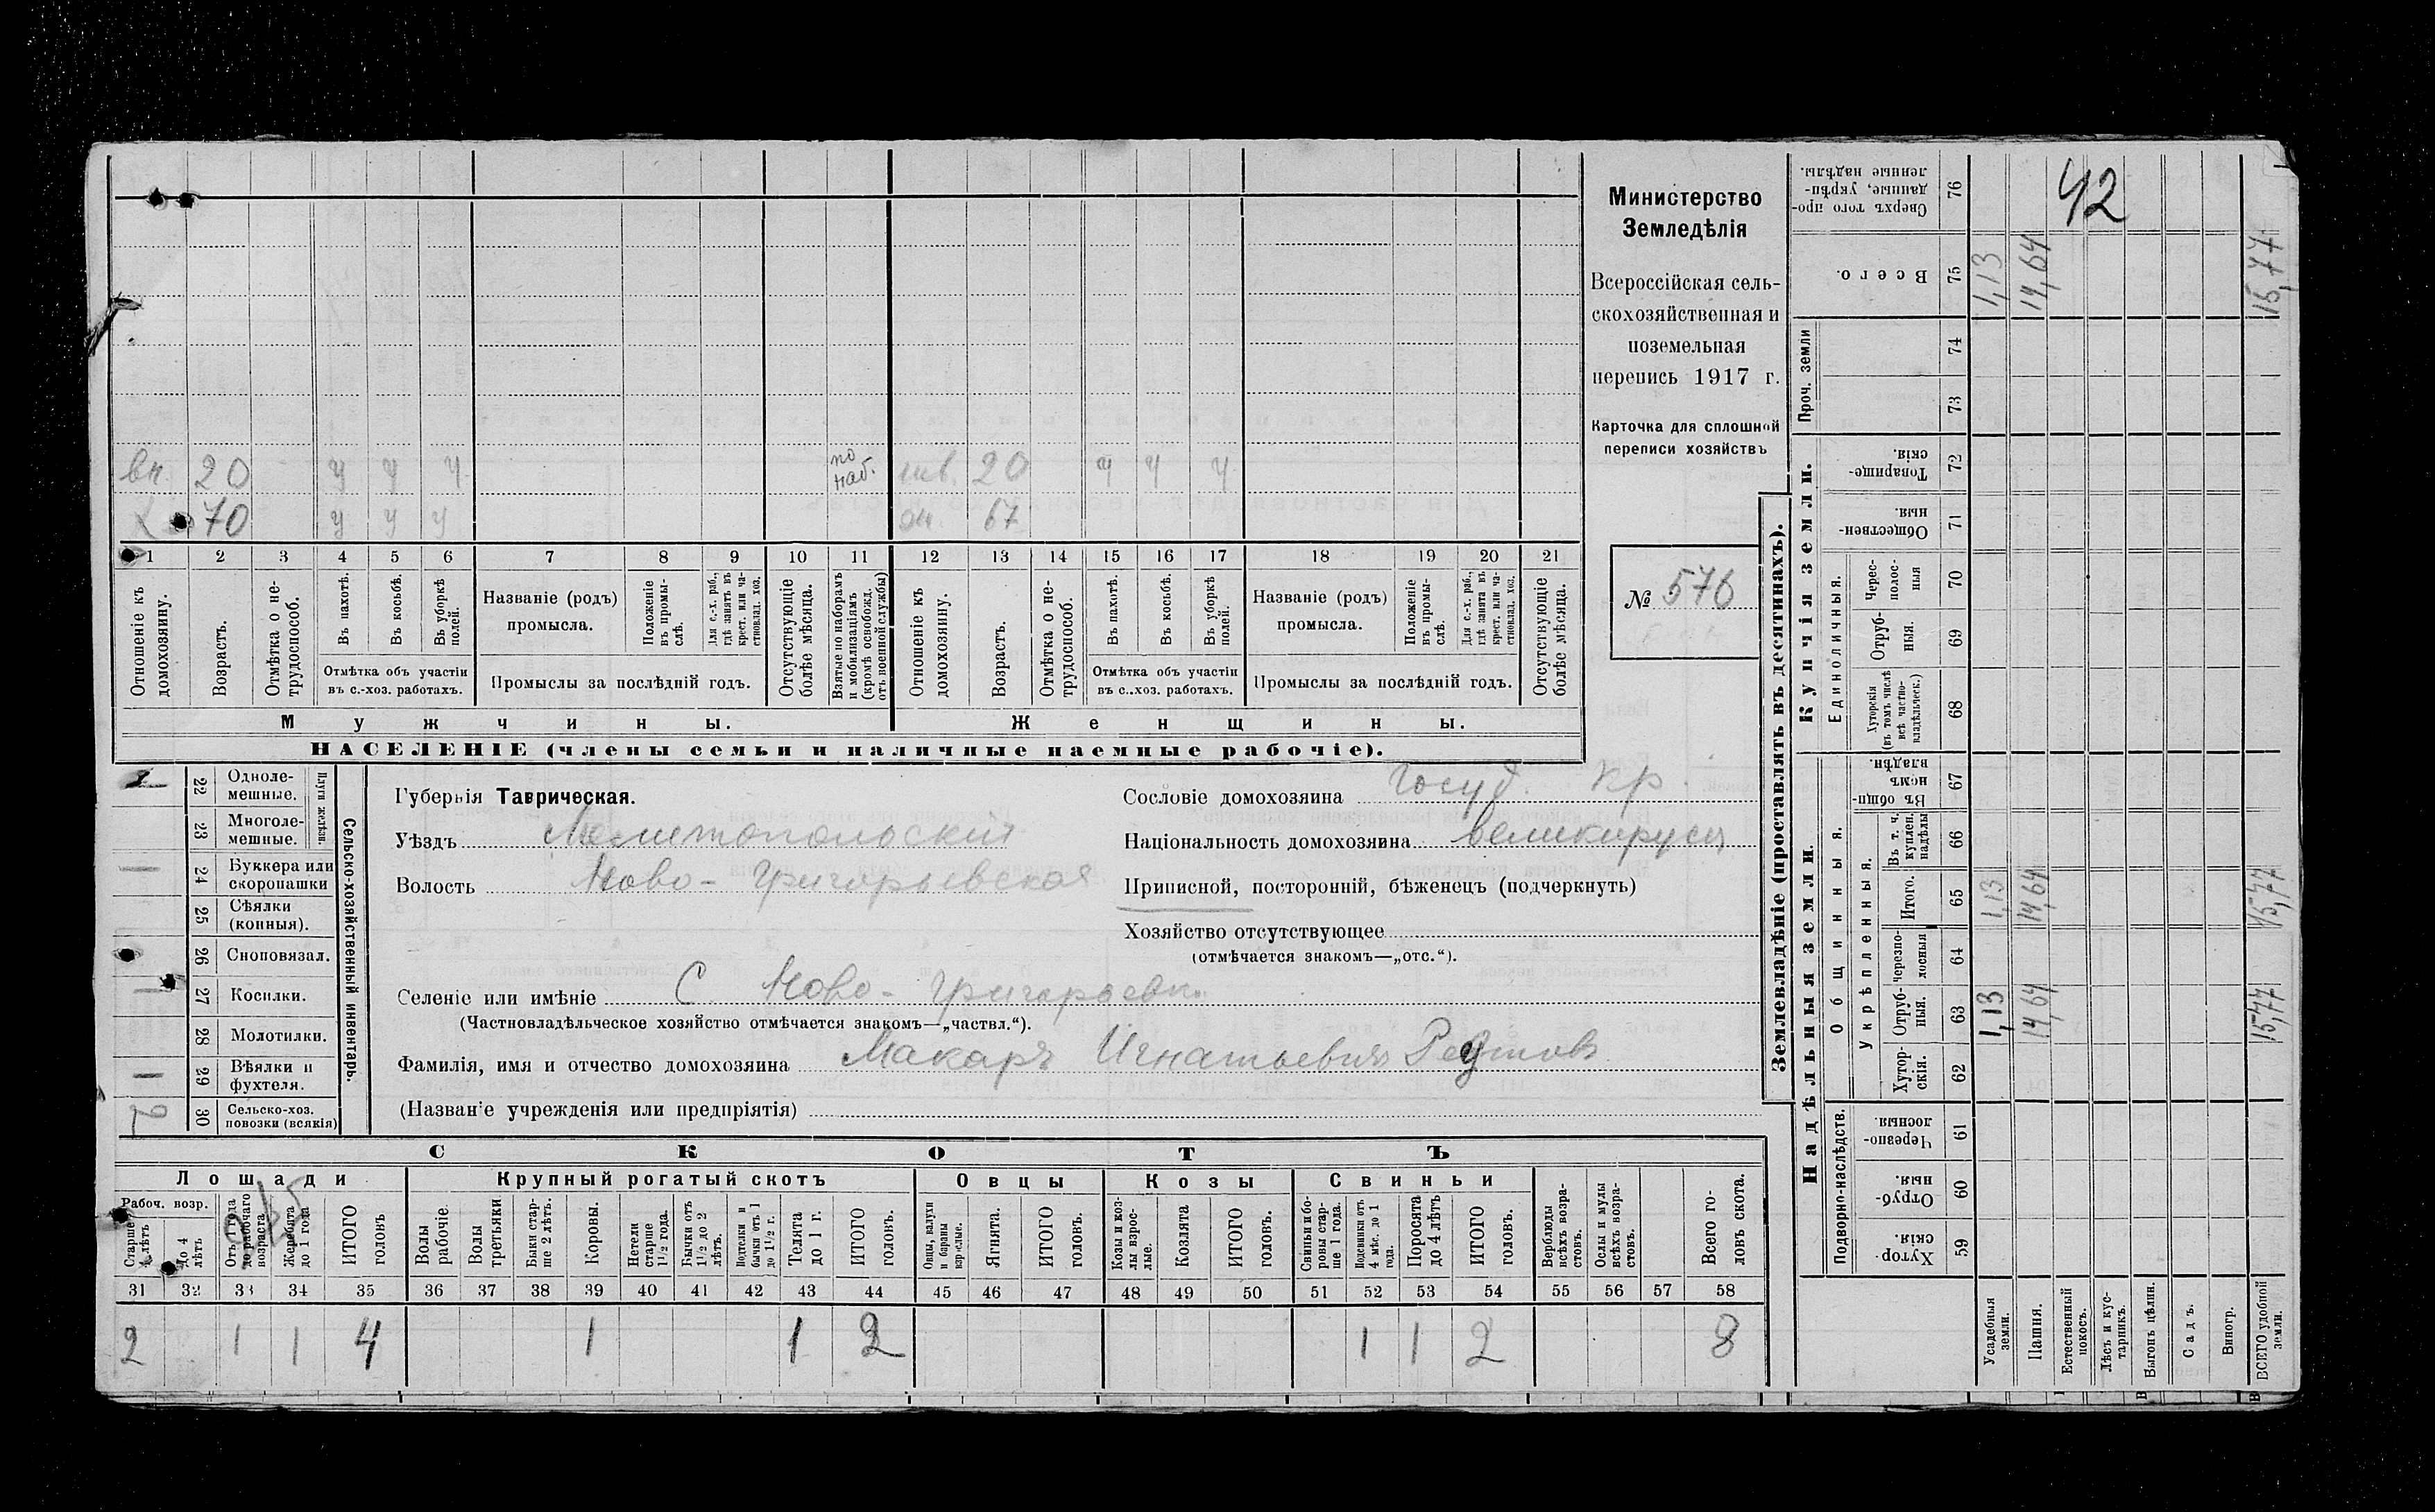 вн. 20 у у у по наб. нев. 20 у у у
Х 70 у у у ж. 67
1 2 3 4 5 6 7 8 9 10 11 12 13 14 15 16 17 18 19 20 21
Отношеніе къ домохозяину.
Возрастъ.
Отмѣтка о нетрудоспособ.
Въ пахотѣ.
Въ косьбѣ.
Въ уборкѣ полей.
Отмѣтка объ участіи
въ с.-хоз. работахъ.
Названіе (родъ)
промысла.
Положеніе въ промыслѣ.
Для с.-х. раб., гдѣ занятъ въ крест. или частновлад. хоз.
Промыслы за послѣдній годъ.
Отсутствующіе болѣе мѣсяца.
Взятые по наборамъ и мобилизаціямъ (кромѣ освобожд. отъ военной службы)
Отношеніе къ домохозяину.
Возрастъ.
Отмѣтка о нетрудоспособ.
Въ пахотѣ.
Въ косьбѣ.
Въ уборкѣ полей.
Отмѣтка объ участіи
въ с.-хоз. работахъ.
Названіе (родъ)
промысла.
Положеніе въ промыслѣ.
Для с.-х. раб., гдѣ занята въ крест. или частновлад. хоз.
Промыслы за послѣдній годъ.
Отсутствующіе болѣе мѣсяца.
Мужчины. Женщины.
НАСЕЛЕНІЕ (члены семьи и наличные наемные рабочіе).
Министерство
Земледѣлія
Всероссійская сель-
скохозяйственная и
поземельная
перепись 1917 г.
Карточка для сплошной
переписи хозяйствъ
№ 576
1 22 Одноле-
мешные.
23 Многоле-
мешные.
Плуги желѣзн.
1 24 Буккера или
скоропашки
25 Сѣялки
(конныя).
26 Сноповязал.
1 27 Косилки.
28 Молотилки.
1 29 Вѣялки и
фухтеля.
2 30 Сельско-хоз.
повозки (всякія)
Сельско-хозяйственный инвентарь.
Губернія Таврическая.
Уѣздъ Мелитопольскій
Волость Ново-Григорьевская
Сословіе домохозяина Госуд. кр.
Національность домохозяина великорусъ
Приписной, посторонній, бѣженецъ (подчеркнуть)
Хозяйство отсутствующее
(отмѣчается знакомъ—„отс.“).
Селеніе или имѣніе С. Ново-Григорьевка
(Частновладѣльческое хозяйство отмѣчается знакомъ—„частвл.“).
Фамилія, имя и отчество домохозяина Макаръ Игнатьевичъ Редтовъ
(Названіе учрежденія или предпріятія)
СКОТЪ
Лошади Крупный рогатый скотъ Овцы Козы Свиньи
Рабоч. возр.
Старше 4 лѣтъ
до 4 лѣтъ
Отъ 1 года до рабочаго возраста
Жеребята до 1 года
ИТОГО головъ
Волы рабочіе.
Волы третьяки
Быки старше 2 лѣтъ.
Коровы.
Нетели старше 1½ года.
Бычки отъ 1½ до 2 лѣтъ.
Подтелки и бычки отъ 1 до 1½ г.
Телята до 1 г.
ИТОГО головъ.
Овцы, валухи и бараны взрослые.
Ягнята.
ИТОГО головъ.
Козы и козлы взрослые.
Козлята
ИТОГО головъ.
Свиньи и боровы старше 1 года.
Подсвинки отъ 4 мѣс. до 1 года.
Поросята до 4 лѣтъ
ИТОГО головъ.
Верблюды всѣхъ возрастовъ.
Ослы и мулы всѣхъ возрастовъ.
Всего головъ скота.
31 32 33 34 35 36 37 38 39 40 41 42 43 44 45 46 47 48 49 50 51 52 53 54 55 56 57 58
2 1 1 4 1 1 2 1 1 2 8
Землевладѣніе (проставлять въ десятинахъ).
Купчія земли.
Надѣльныя земли.
Сверхъ того проданные, укрѣпленные надѣлы. 76 42
Всего. 75 1,13 14,64 15,77
Проч. земли 74
73
Товарищескія. 72
Общественныя. 71
Единоличныя.
Чересполосныя 70
Отрубныя. 69
Хуторскія (въ томъ числѣ всѣ частновладѣльческ.) 68
Общинныя.
Въ общинномъ владѣн. 67
Укрѣпленныя.
Въ т. ч. куплен. надѣлы 66
Итого. 65 1,13 14,64 15,77
Черезполосныя 64
Отрубныя. 63 1,13 14,64 15,77
Хуторскія. 62
Подворно-наслѣдств.
Черезполосныя 61
Отрубныя. 60
Хуторскія. 59
Усадебныя земли.
Пашня.
Естественный покосъ.
Лѣсъ и кустарникъ.
Выгонъ цѣлин.
Садъ.
Виногр.
ВСЕГО удобной земли.